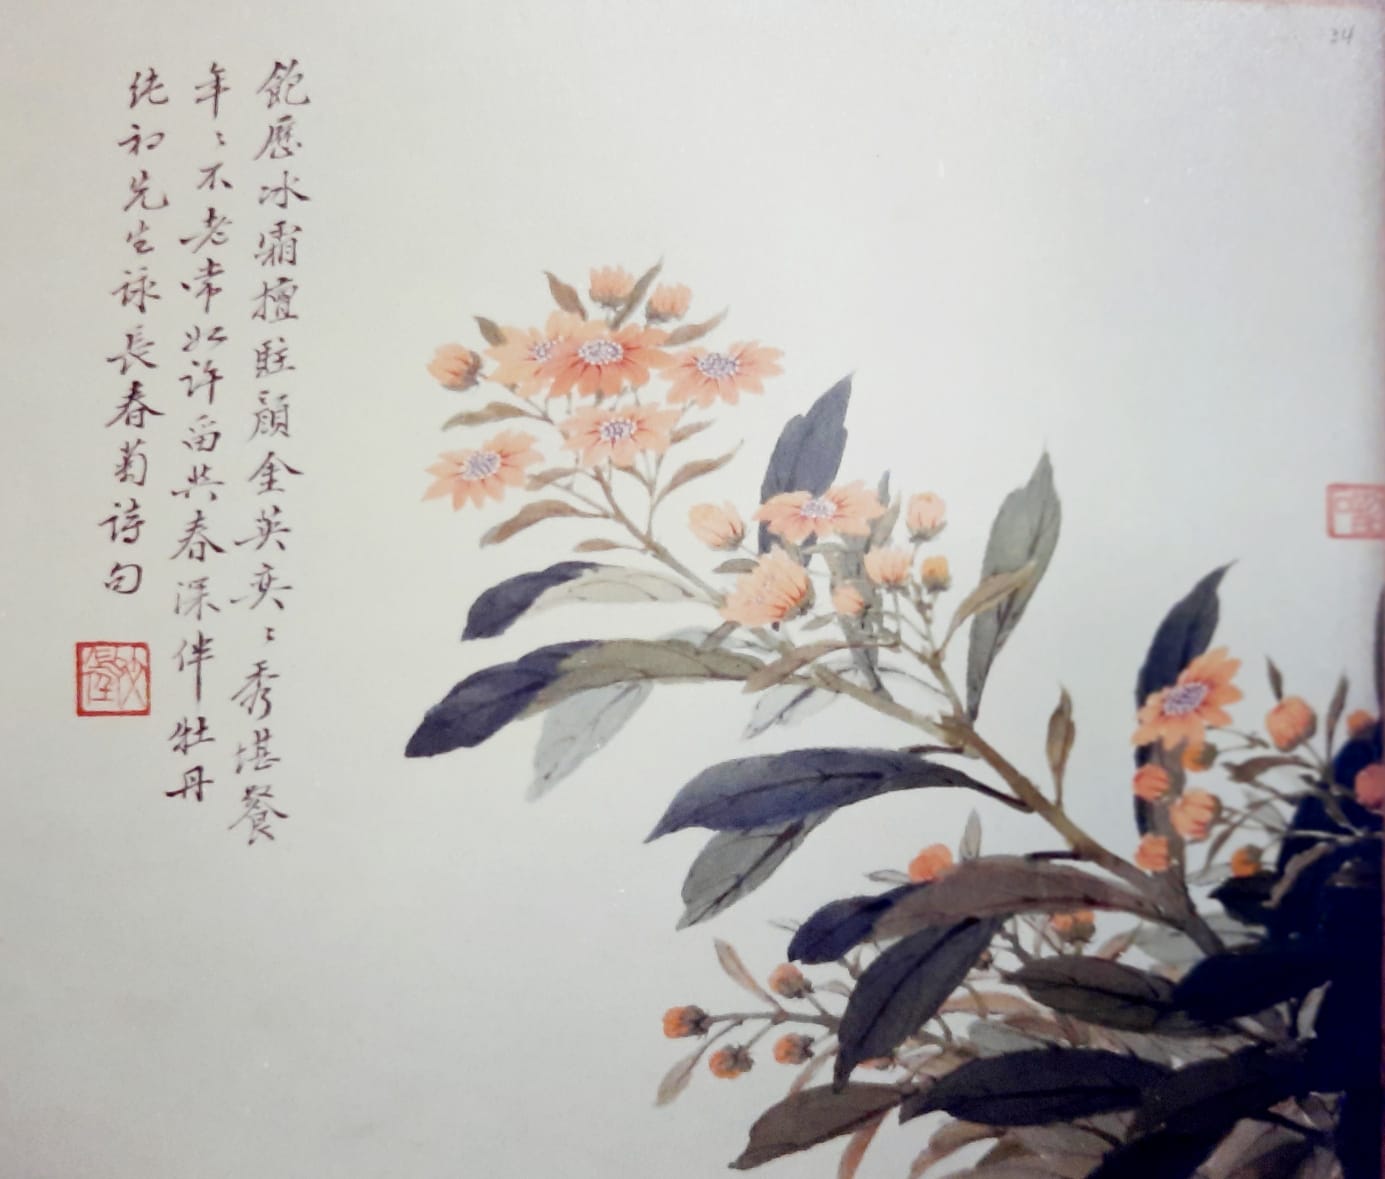 飽歷冰霜擅駐顏金英奕〻秀堪餐
年〻不老常如許留共春深伴牡丹
純初先生詠長春菊詩句
34